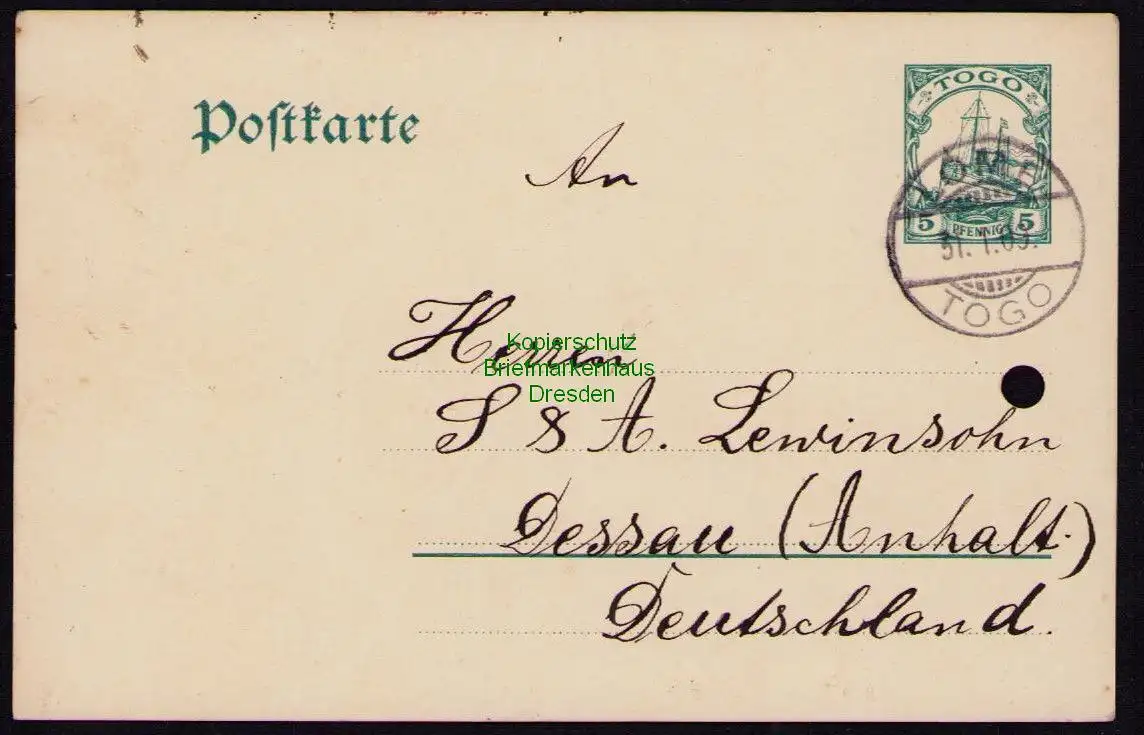 Postkarte
TOGO
5 PFENNIG 5
LOME
31. 1. 09.
TOGO
An
Herren
Kopierschutz
Briefmarkenhaus
Dresden
S & A. Lewinsohn
Dessau (Anhalt.)
Deutschland.